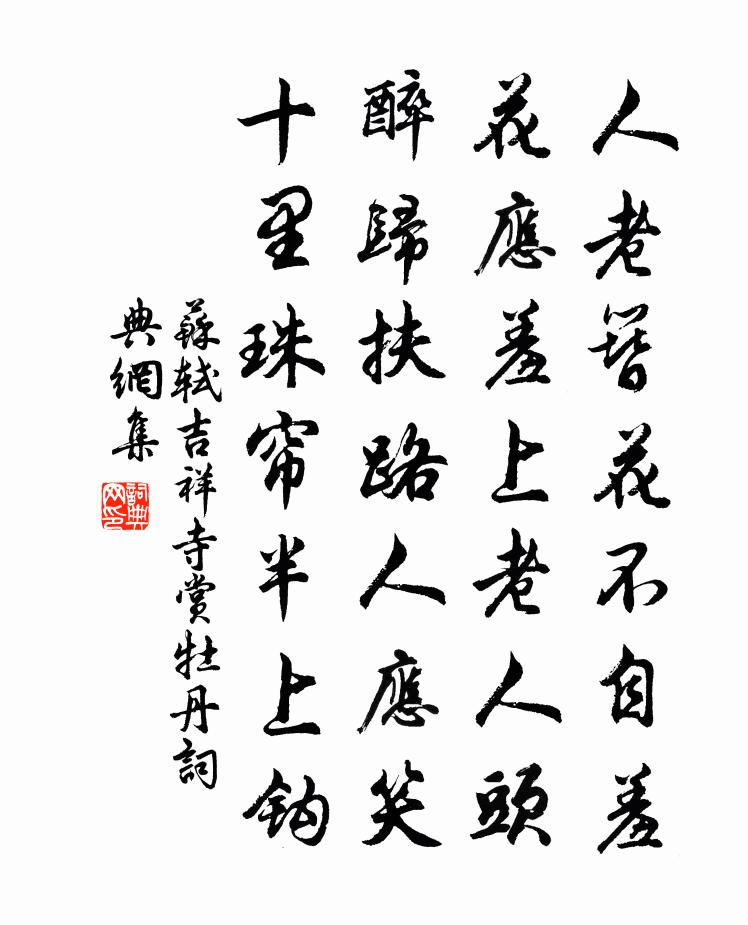 人老簪花不自羞
花應羞上老人頭
醉歸扶路人應笑
十里珠帘半上鈎
蘇軾吉祥寺賞牡丹詞
典網集
詞典网印